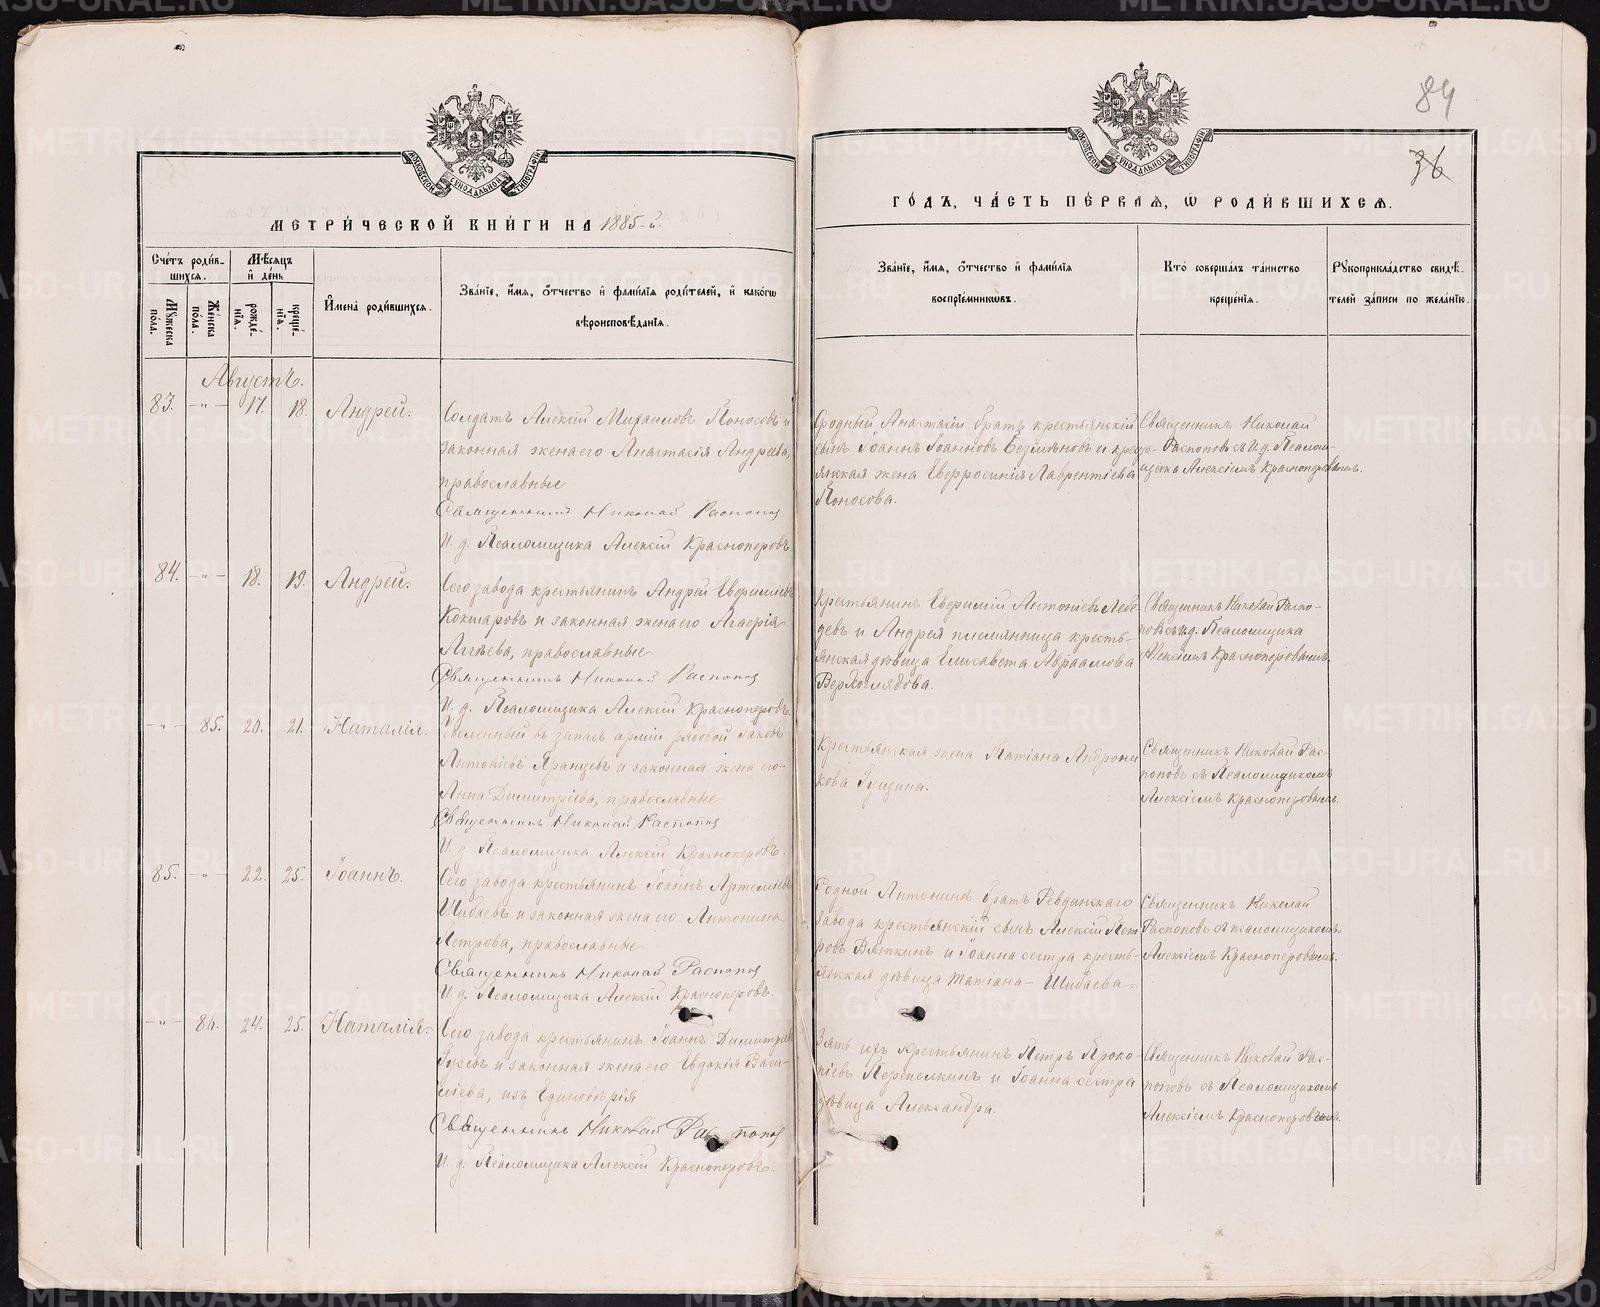 МОСКОВСКОЙ СѴНОДАЛЬНОЙ ТИПОГРАФІИ
МЕТРИ́ЧЕСКОЙ КНИ́ГИ НА 1885-й.
Сче́тъ роди́в-
шихсѧ.
Мѣ́сѧцъ
и҆ де́нь
Мꙋ́жеска
по́ла.
Же́нска
по́ла.
рожде́-
нїѧ.
креще́-
нїѧ.
И҆мена̀ роди́вшихсѧ.
Зва́нїе, и҆́мѧ, ѻ҆́тчество и҆ фами́лїѧ роди́телей, и҆ како́гѡ
вѣроисповѣ́данїѧ.
Августъ.
83. -"- 17. 18. Андрей.
Солдатъ Алексій Михаиловъ Поносовъ и
законная жена его Анастасія Андреева,
православные
Священникъ Николай Распоповъ
И. д. Псаломщика Алексій Красноперовъ
84. -"- 18. 19. Андрей.
Сего завода крестьянинъ Андрей Евфиміевъ
Кокшаровъ и законная жена его Агафія
православные
Священникъ Николай Распоповъ
И. д. Псаломщика Алексій Красноперовъ.
-"- 85. 20. 21. Наталія.
въ запасъ арміи рядовой Іаковъ
Антоніевъ Яранцевъ и законная жена его
Анна Димитріева, православные
Священникъ Николай Распоповъ
И. д. Псаломщика Алексій Красноперовъ.
85. -"- 22. 25. Іоаннъ.
Сего завода крестьянинъ Іоаннъ Артеміевъ
Шибаевъ и законная жена его Антонина
Петрова, православные
Священникъ Николай Распоповъ
И. д. Псаломщика Алексій Красноперовъ.
-"- 86. 24. 25. Наталія.
Сего завода крестьянинъ Іоаннъ Димитріевъ
Гусевъ и законная жена его Евдокія Васи-
ліева, изъ Единовѣрія
Священникъ Николай Распоповъ
И. д. Псаломщика Алексій Красноперовъ.
84
36
МОСКОВСКОЙ СѴНОДАЛЬНОЙ ТИПОГРАФІИ
ГО́ДЪ, ЧА́СТЬ ПЕ́РВАЯ, Ѡ҆ РОДИ́ВШИХСѦ.
Зва́нїе, и҆́мѧ, ѻ҆́тчество и҆ фами́лїѧ
воспрїе́мникѡвъ.
Кто̀ соверша́лъ та́инство
креще́нїѧ.
Рꙋкоприкла́дство свидѣ́-
телей за́писи по жела́нїю.
Сродный Анастасіи братъ крестьянскій
сынъ Іоаннъ Іоанновъ и кресть-
янская жена Евфросинія Лаврентіева
Поносова.
Священникъ Николай
Распоповъ съ И. д. Псалом-
щика Алексіемъ Красноперовымъ.
Крестьянинъ Евфимій Антоніевъ Лебе-
девъ и Андрея племянница кресть-
янская дѣвица Елисавета Авраамова
Верхоглядова.
Священникъ Николай Распо-
повъ съ и.д. Псаломщика
Алексіемъ Красноперовымъ.
Крестьянская жена Татіана Андрони-
кова Гущина.
Священникъ Николай Рас-
поповъ съ Псаломщикомъ
Алексіемъ Красноперовымъ.
Родной Антонины братъ Ревдинскаго
завода крестьянскій сынъ Алексій Пет-
ровъ Вяткинъ и Іоанна сестра кресть-
янская дѣвица Татіана Шибаева.
Священникъ Николай
Распоповъ съ псаломщикомъ
Алексіемъ Красноперовымъ.
Зять ихъ крестьянинъ Петръ Проко-
піевъ Перепелкинъ и Іоанна сестра
дѣвица Александра.
Священникъ Николай Рас-
поповъ съ Псаломщикомъ
Алексіемъ Красноперовымъ.
METRIKI.GASO-URAL.RU